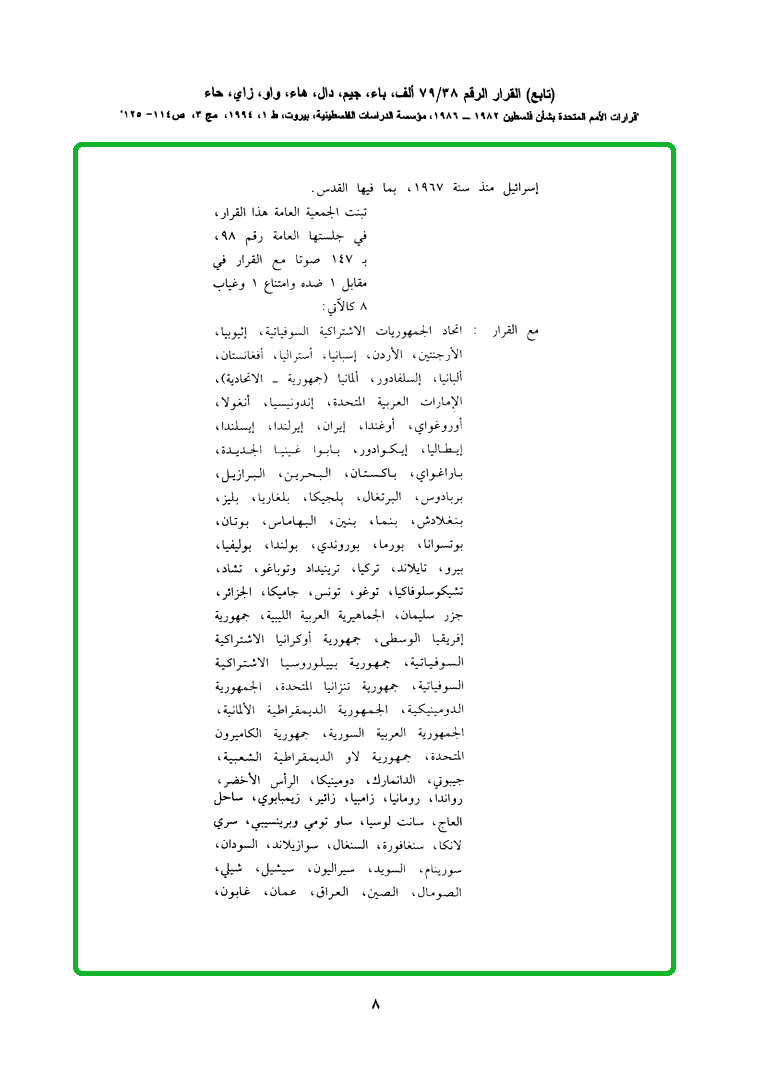 (تابع) القرار الرقم ٧٩/٣٨ ألف، باء، جيم، دال، هاء، واو، زاي، حاء
"قرارات الأمم المتحدة بشأن فلسطين ١٩٨٢ ــ ١٩٨٦، مؤسسة الدراسات الفلسطينية، بيروت، ط ١، ١٩٩٤، مج ٣، ص١١٤- ١٢٥"
إسرائيل منذ سنة ١٩٦٧، بما فيها القدس.
تبنت الجمعية العامة هذا القرار،
في جلستها العامة رقم ٩٨،
بـ ١٤٧ صوتا مع القرار في
مقابل ١ ضده وامتناع ١ وغياب
٨ كالآتي:
مع القرار : اتحاد الجمهوريات الاشتراكية السوفياتية، إثيوبيا،
الأرجنتين، الأردن، إسبانيا، أستراليا، أفغانستان،
ألبانيا، إلسلفادور، ألمانيا (جمهورية ـ الاتحادية)،
الإمارات العربية المتحدة، إندونيسيا، أنغولا،
أوروغواي، أوغندا، إيران، إيرلندا، إيسلندا،
إيطاليا، إيكوادور، بابوا غينيا الجديدة،
باراغواي، باكستان، البحرين، البرازيل،
بربادوس، البرتغال، بلجيكا، بلغاريا، بليز،
بنغلادش، بنما، بنين، البهاماس، بوتان،
بوتسوانا، بورما، بوروندي، بولندا، بوليفيا،
بيرو، تايلاند، تركيا، ترينيداد وتوباغو، تشاد،
تشيكوسلوفاكيا، توغو، تونس، جاميكا، الجزائر،
جزر سليمان، الجماهيرية العربية الليبية، جمهورية
إفريقيا الوسطى، جمهورية أوكرانيا الاشتراكية
السوفياتية، جمهورية بييلوروسيا الاشتراكية
السوفياتية، جمهورية تنزانيا المتحدة، الجمهورية
الدومينيكية، الجمهورية الديمقراطية الألمانية،
الجمهورية العربية السورية، جمهورية الكاميرون
المتحدة، جمهورية لاو الديمقراطية الشعبية،
جيبوتي، الدانمارك، دومينيكا، الرأس الأخضر،
رواندا، رومانيا، زامبيا، زائير، زيمبابوي، ساحل
العاج، سانت لوسيا، ساو تومي وبرينسيبي، سري
لانكا، سنغافورة، السنغال، سوازيلاند، السودان،
سورينام، السويد، سيراليون، سيشيل، شيلي،
الصومال، الصين، العراق، عمان، غابون،
٨